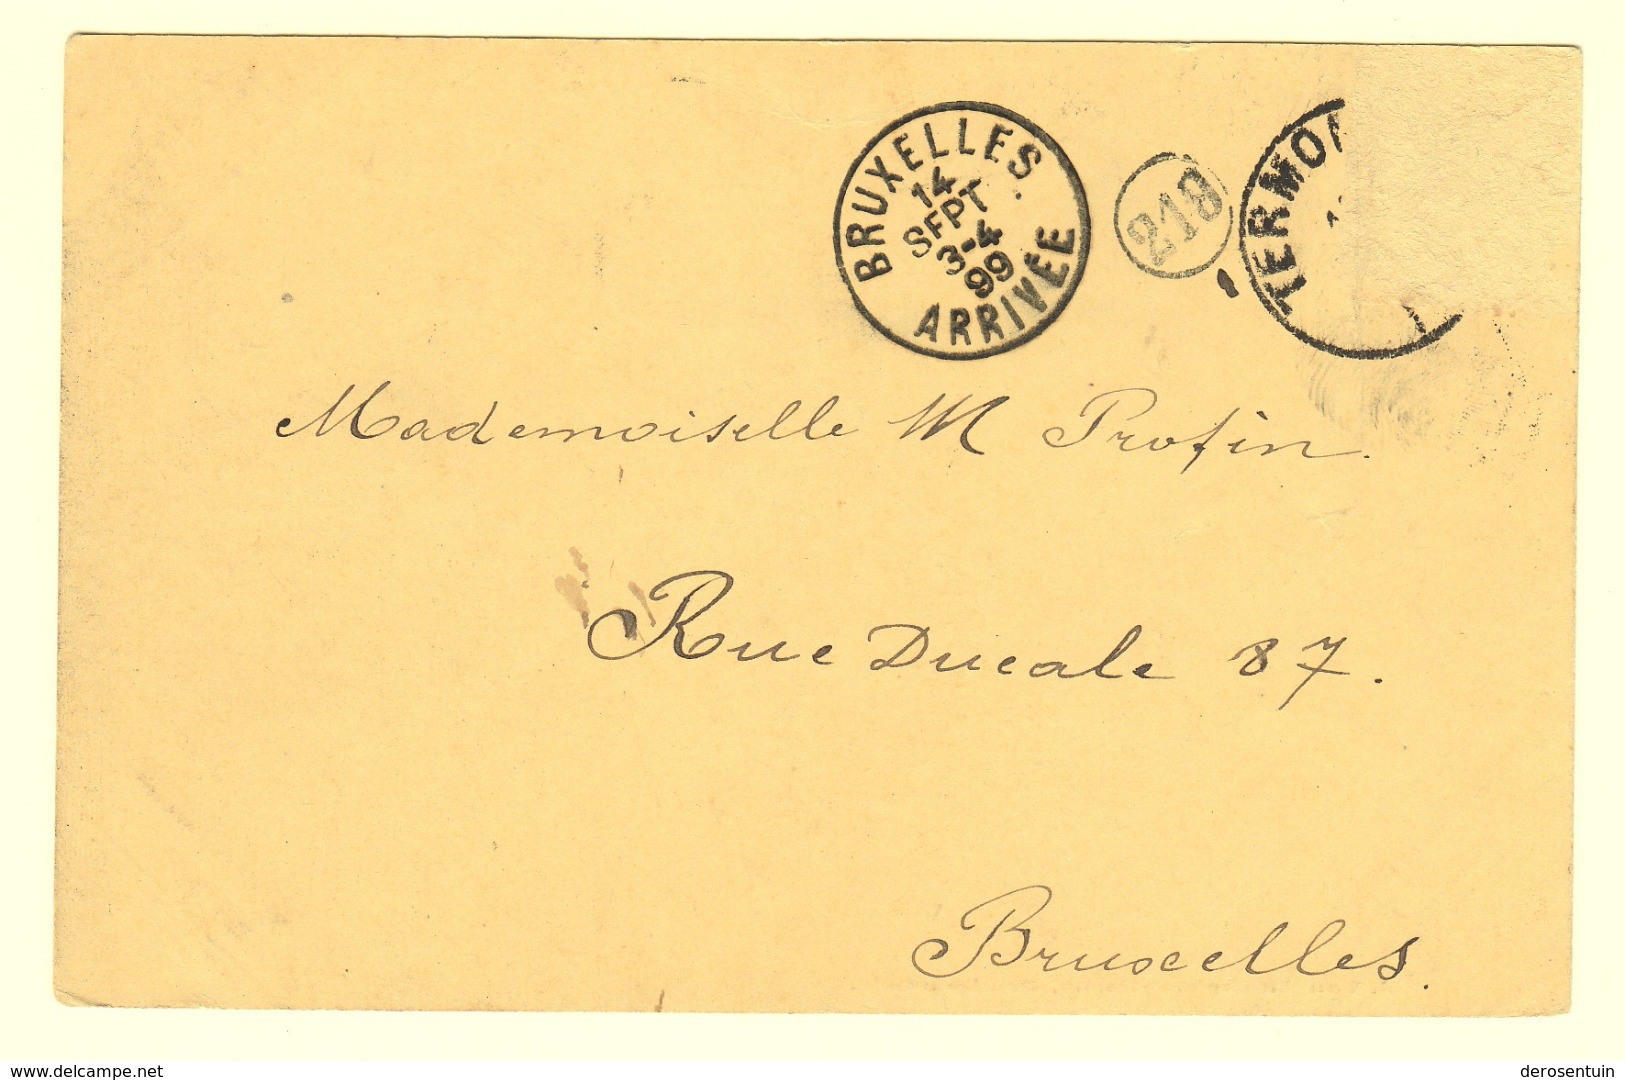 BRUXELLES
14
SEPT
3-4
99
ARRIVÉE
218
TERMO
Mademoiselle M Profin.
Rue Ducale 87.
Bruxelles.
www.delcampe.net
derosentuin